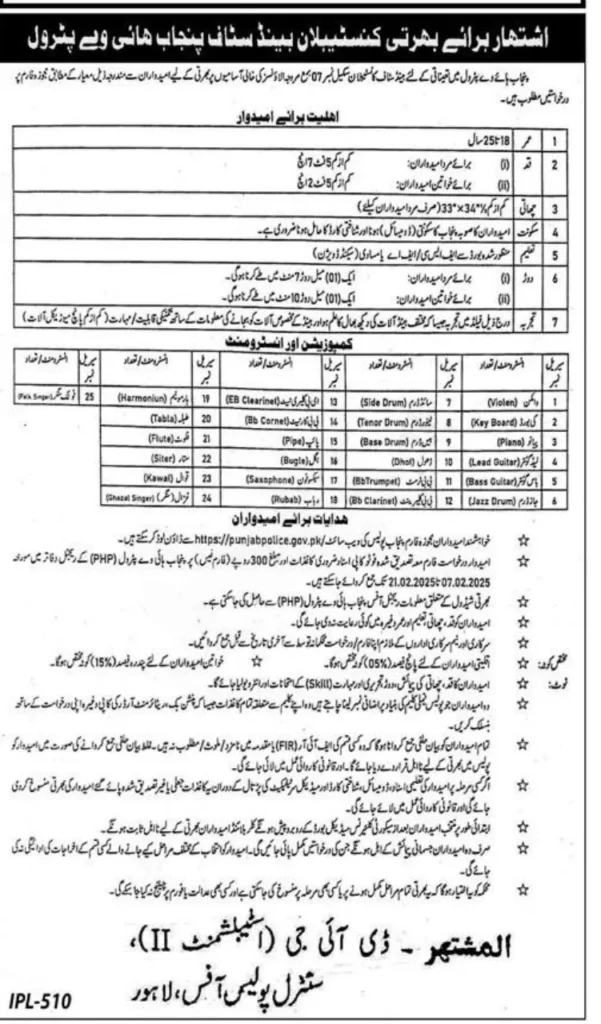 اشتہار برائے بھرتی کنسٹیبلان بینڈ سٹاف پنجاب ہائی وے پٹرول
پنجاب ہائے وے پٹرول میں تعیناتی کے لئے بینڈ سٹاف کانسٹیبلان سکیل نمبر 07 بمع مروجہ الاؤنسز کی خالی آسامیوں پر بھرتی کے لیے امیدواران سے مندرجہ ذیل معیار کے مطابق مجوزہ فارم پر
درخواستیں مطلوب ہیں۔
اہلیت برائے امیدوار
1 عمر 18 تا 25 سال
2 قد (i) برائے مرد امیدواران: کم از کم 5 فٹ 7 انچ
(ii) برائے خواتین امیدواران: کم از کم 5 فٹ 2 انچ
3 چھاتی کم از کم 33"×34½" (صرف مرد امیدواران کیلئے)
4 سکونت امیدواران کا صوبہ پنجاب کا سکونتی (ڈومیسائل) ہونا اور شناختی کارڈ کا حامل ہونا ضروری ہے۔
5 تعلیم منظور شدہ بورڈ سے ایف ایس سی/ایف اے یا مساوی (سیکنڈ ڈویژن)
6 دوڑ (i) برائے مرد امیدواران: ایک (01) میل دوڑ 7 منٹ میں طے کرنا ہوگی۔
(ii) برائے خواتین امیدواران: ایک (01) میل دوڑ 10 منٹ میں طے کرنا ہوگی۔
7 تجربہ درج ذیل فیلڈ میں تجربہ جیسا کہ مختلف بینڈ آلات کی دیکھ بھال کا علم ہو اور بینڈ کے مخصوص آلات کو بجانے کی معلومات کے ساتھ تکنیکی قابلیت/مہارت (کم از کم پانچ میوزیکل آلات)
کمپوزیشن اور انسٹرومنٹ
سیریل نمبر انسٹرومنٹ/تعداد سیریل نمبر انسٹرومنٹ/تعداد سیریل نمبر انسٹرومنٹ/تعداد سیریل نمبر انسٹرومنٹ/تعداد سیریل نمبر انسٹرومنٹ/تعداد
1 وائلن (Violen) 7 سائڈ ڈرم (Side Drum) 13 ای بی کلیری نیٹ (EB Clearinet) 19 ہارمونیم (Harmoniun) 25 فوک سنگر (Folk Singer)
2 کی بورڈ (Key Board) 8 ٹینور ڈرم (Tenor Drum) 14 بی بی کارنیٹ (Bb Cornet) 20 طبلہ (Tabla)
3 پیانو (Piano) 9 بیس ڈرم (Base Drum) 15 پائپ (Pipe) 21 فلوٹ (Flute)
4 لیڈ گٹار (Lead Guitar) 10 ڈھول (Dhol) 16 بگل (Bugle) 22 ستار (Siter)
5 باس گٹار (Bass Guitar) 11 بی بی ٹرمپٹ (BbTrumpet) 17 سیکسوفون (Saxophone) 23 قوال (Kawal)
6 جاز ڈرم (Jazz Drum) 12 بی بی کلیری نٹ (Bb Clarinet) 18 رباب (Rubab) 24 غزال سنگر (Ghazal Singer)
ہدایات برائے امیدواران
☆ خواہشمند امیدواران مجوزہ فارم پنجاب پولیس کی ویب سائٹ https://punjabpolice.gov.pk/ سے ڈاؤن لوڈ کر سکتے ہیں۔
☆ امیدوار درخواست فارم معہ تصدیق شدہ فوٹو کاپی اسناد ضروری کاغذات اور مبلغ 300 روپے (فارم فیس) پنجاب ہائی وے پٹرول (PHP) کے ریجنل دفاتر میں مورخہ
07.02.2025 تا 21.02.2025 تک جمع کروائے جا سکتے ہیں۔
☆ بھرتی شیڈول کے متعلق معلومات ریجنل آفس پنجاب ہائی وے پٹرول (PHP) سے حاصل کی جا سکتی ہے۔
☆ امیدواران کو قد، چھاتی تعلیم اور عمر وغیرہ میں کوئی رعایت نہ دی جائے گی۔
☆ سرکاری اور نیم سرکاری اداروں کے ملازم اپنا فارم/درخواست محکمانہ توسط سے آخری تاریخ سے قبل جمع کروائیں۔
مختص کوٹہ: ☆ اقلیتی امیدواران کے لئے پانچ فیصد (05%) کوٹہ مختص ہوگا۔ ☆ خواتین امیدواران کے لئے پندرہ فیصد (15%) کوٹہ مختص ہوگا۔
نوٹ: ☆ امیدواران کا قد، چھاتی کی پیمائش، دوڑ، تحریری اور مہارت (Skill) کے امتحانات اور انٹرویو لیا جائے گا۔
☆ وہ امیدواران جو پولیس فیملی کلیم کی بنیاد پر اضافی نمبر لینا چاہتے ہیں وہ اپنے کلیم سے متعلقہ تمام کاغذات جیسا کہ پنشن بک، ریٹائرمنٹ آرڈر کی کاپی وغیرہ اپنی درخواست کے ساتھ
منسلک کریں۔
☆ تمام امیدواران کو بیان حلفی جمع کروانا ہوگا کہ وہ کسی قسم کی ایف آئی آر (FIR) یا مقدمہ میں نامزد/ملوث/مطلوب نہ ہیں۔ غلط بیان حلفی جمع کروانے کی صورت میں امیدوار کو
پولیس میں بھرتی کے لیے نااہل قرار دے دیا جائے گا۔ اور قانونی کاروائی عمل میں لائی جائے گی۔
☆ اگر کسی مرحلہ پر امیدوار کی تعلیمی اسناد، ڈومیسائل، شناختی کارڈ اور میڈیکل سرٹیفکیٹ کی پڑتال کے دوران یہ کاغذات جعلی یا غیر تصدیق شدہ پائے گئے امیدوار کی بھرتی منسوخ کر دی
جائے گی اور قانونی کاروائی عمل میں لائی جائے گی۔
☆ ابتدائی طور پر منتخب امیدواران بعد از سیکورٹی کلیئرنس میڈیکل بورڈ کے روبرو پیش ہونگے کلر بلائنڈ امیدواران بھرتی کے لیے نااہل ثابت ہونگے۔
☆ صرف وہ امیدواران جسمانی پیمائش کے اہل ہونگے جن کی درخواستیں مکمل پائی جائیں گی۔ امیدوار کو انتخاب کے مختلف مراحل کیلئے کیے جانے والے کسی قسم کے اخراجات کی ادائیگی نہ کی
جائے گی۔
☆ محکمہ کو یہ اختیار ہوگا کہ یہ بھرتی تمام مراحل مکمل ہونے پر یا کسی بھی مرحلہ پر منسوخ کی جا سکتی ہے اور کسی بھی عدالت یا فورم پر چیلنج نہ کیا جا سکے گی۔
المشتہر - ڈی آئی جی (اسٹیبلشمنٹ II)،
سنٹرل پولیس آفس، لاہور
IPL-510